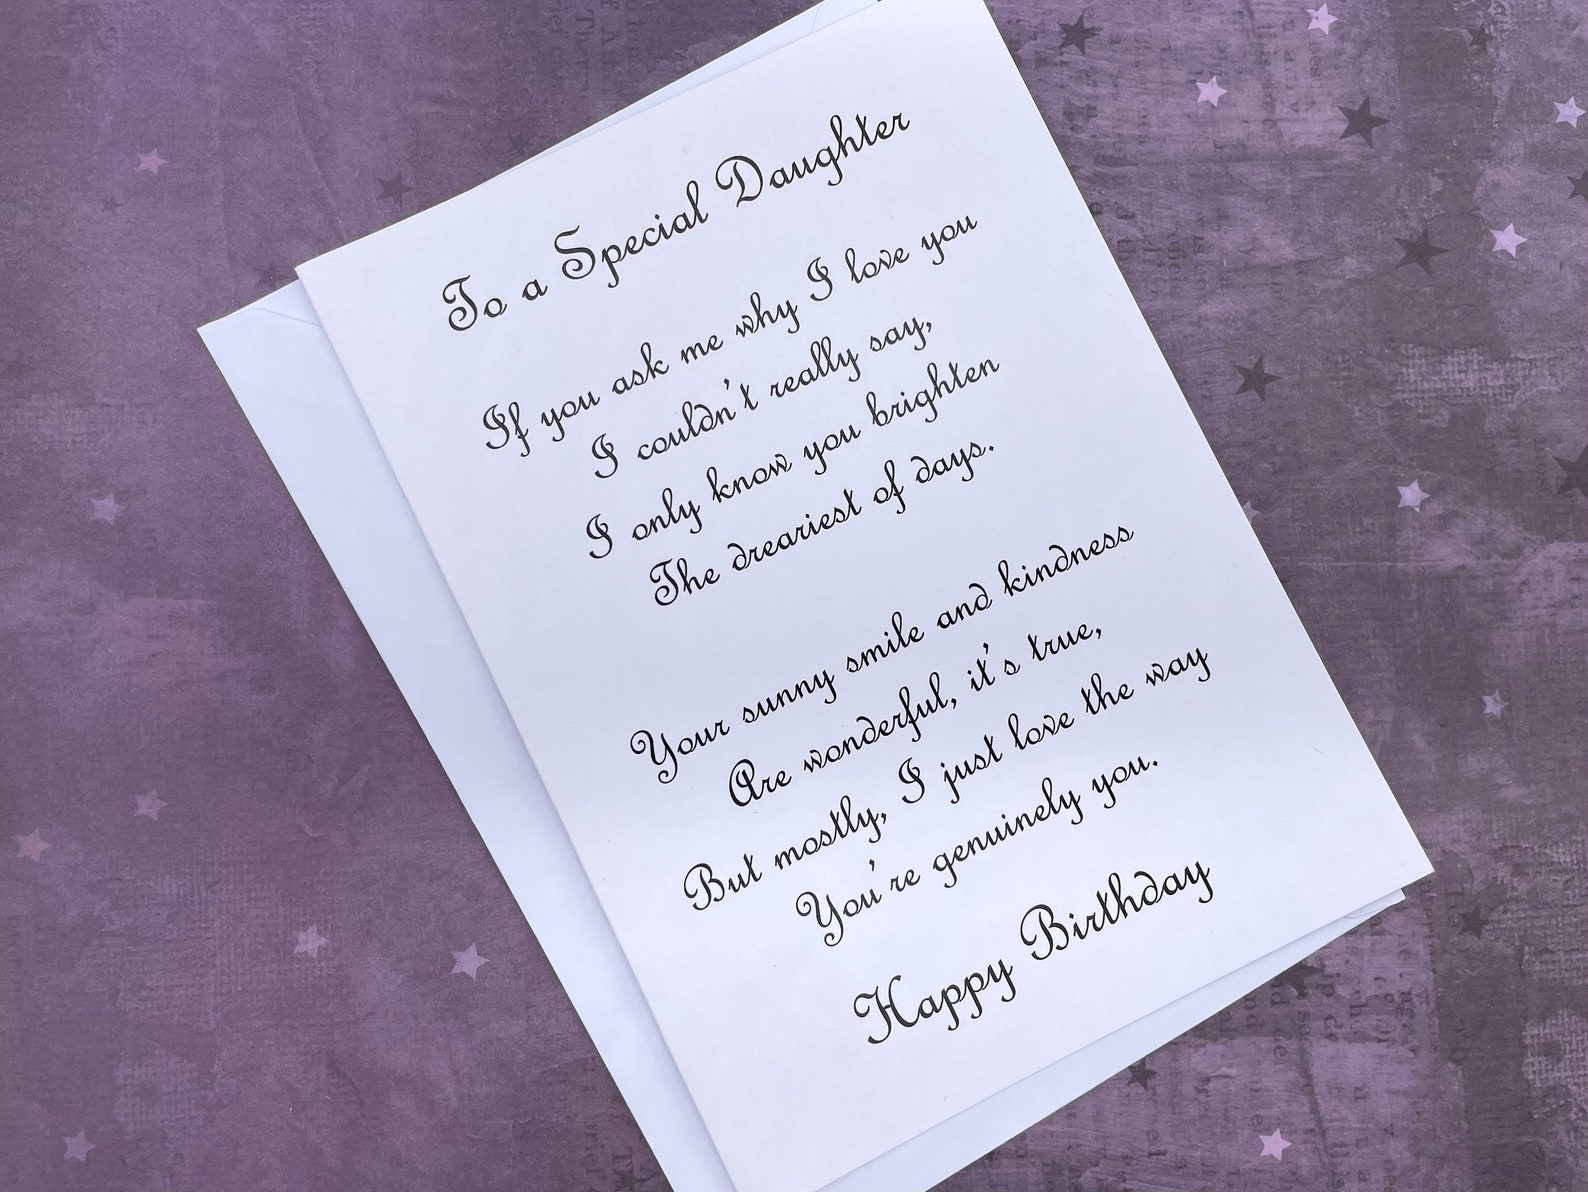 To a Special Daughter
If you ask me why I love you
I couldn't really say,
I only know you brighten
The dreariest of days.
Your sunny smile and kindness
Are wonderful, it's true,
But mostly, I just love the way
You're genuinely you.
Happy Birthday